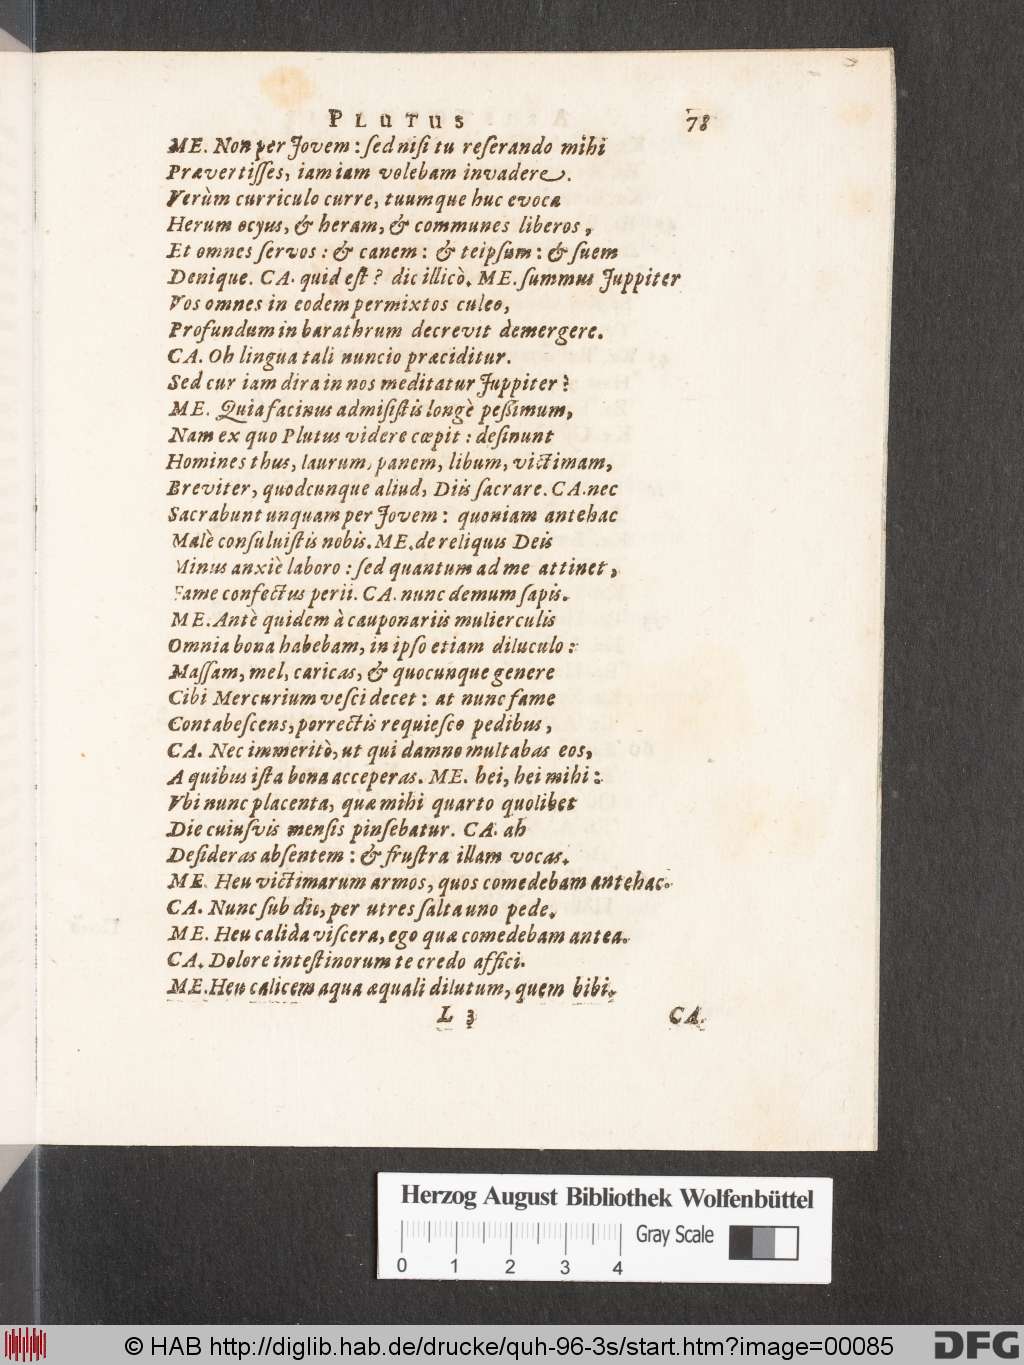 PLUTUS 78
ME. Non per Jovem: sed nisi tu reserando mihi
Prævertisses, iam iam volebam invadere.
Verùm curriculo curre, tuumque huc evoca
Herum ocyus, & heram, & communes liberos,
Et omnes servos: & canem: & teipsum: & suem
Denique. CA. quid est? dic illicò. ME. summus Juppiter
Vos omnes in eodem permixtos culeo,
Profundum in barathrum decrevit demergere.
CA. Oh lingua tali nuncio præciditur.
Sed cur iam dira in nos meditatur Juppiter?
ME. Quia facinus admisistis longè pessimum,
Nam ex quo Plutus videre cœpit: desinunt
Homines thus, laurum, panem, libum, victimam,
Breviter, quodcunque aliud, Diis sacrare. CA. nec
Sacrabunt unquam per Jovem: quoniam antehac
Malè consuluistis nobis. ME. de reliquis Deis
Minus anxiè laboro: sed quantum ad me attinet,
Fame confectus perii. CA. nunc demum sapis.
ME. Antè quidem à cauponariis mulierculis
Omnia bona habebam, in ipso etiam diluculo:
Massam, mel, caricas, & quocunque genere
Cibi Mercurium vesci decet: at nunc fame
Contabescens, porrectis requiesco pedibus,
CA. Nec immeritò, ut qui damno multabas eos,
A quibus ista bona acceperas. ME. hei, hei mihi:
Vbi nunc placenta, quæ mihi quarto quolibet
Die cuiusvis mensis pinsebatur. CA. ah
Desideras absentem: & frustra illam vocas.
ME. Heu victimarum armos, quos comedebam antehac.
CA. Nunc sub dio, per utres salta uno pede.
ME. Heu calida viscera, ego quæ comedebam antea.
CA. Dolore intestinorum te credo affici.
ME. Heu calicem aqua æquali dilutum, quem bibi.
L 3 CA.
Herzog August Bibliothek Wolfenbüttel
Gray Scale
0 1 2 3 4
© HAB http://diglib.hab.de/drucke/quh-96-3s/start.htm?image=00085
DFG